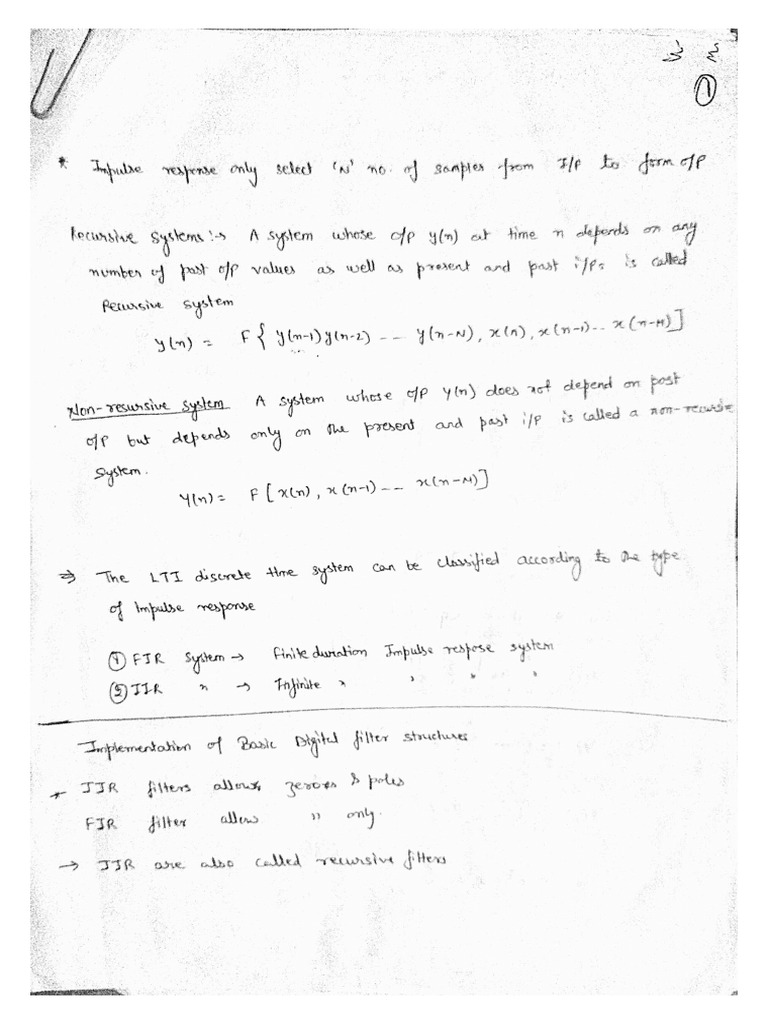 ①
* Impulse response only select 'N' no. of samples from I/P to form O/P
Recursive systems:→ A system whose O/P y(n) at time n depends on any
number of past O/P values as well as present and past i/Ps is called
Recursive system
y(n) = F{ y(n-1) y(n-2) -- y(n-N), x(n), x(n-1)-- x(n-M)]
Non-resursive system A system whose O/P y(n) does not depend on past
O/P but depends only on the present and past i/P is called a non-recursive
system.
y(n) = F[x(n), x(n-1)-- x(n-M)]
⇒ The LTI discrete time system can be classified according to the type
of Impulse response
① FIR System → Finite duration Impulse respose system
② IIR " → Infinite " " " "
Implementation of Basic Digital filter structures
* IIR filters allows zeroes & poles
FIR filter allows " only.
→ IIR are also called recursive filters